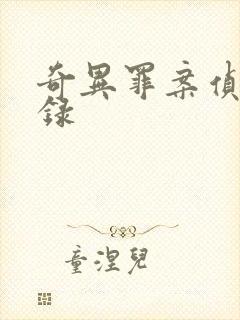 奇異罪案偵
錄
童涅兒